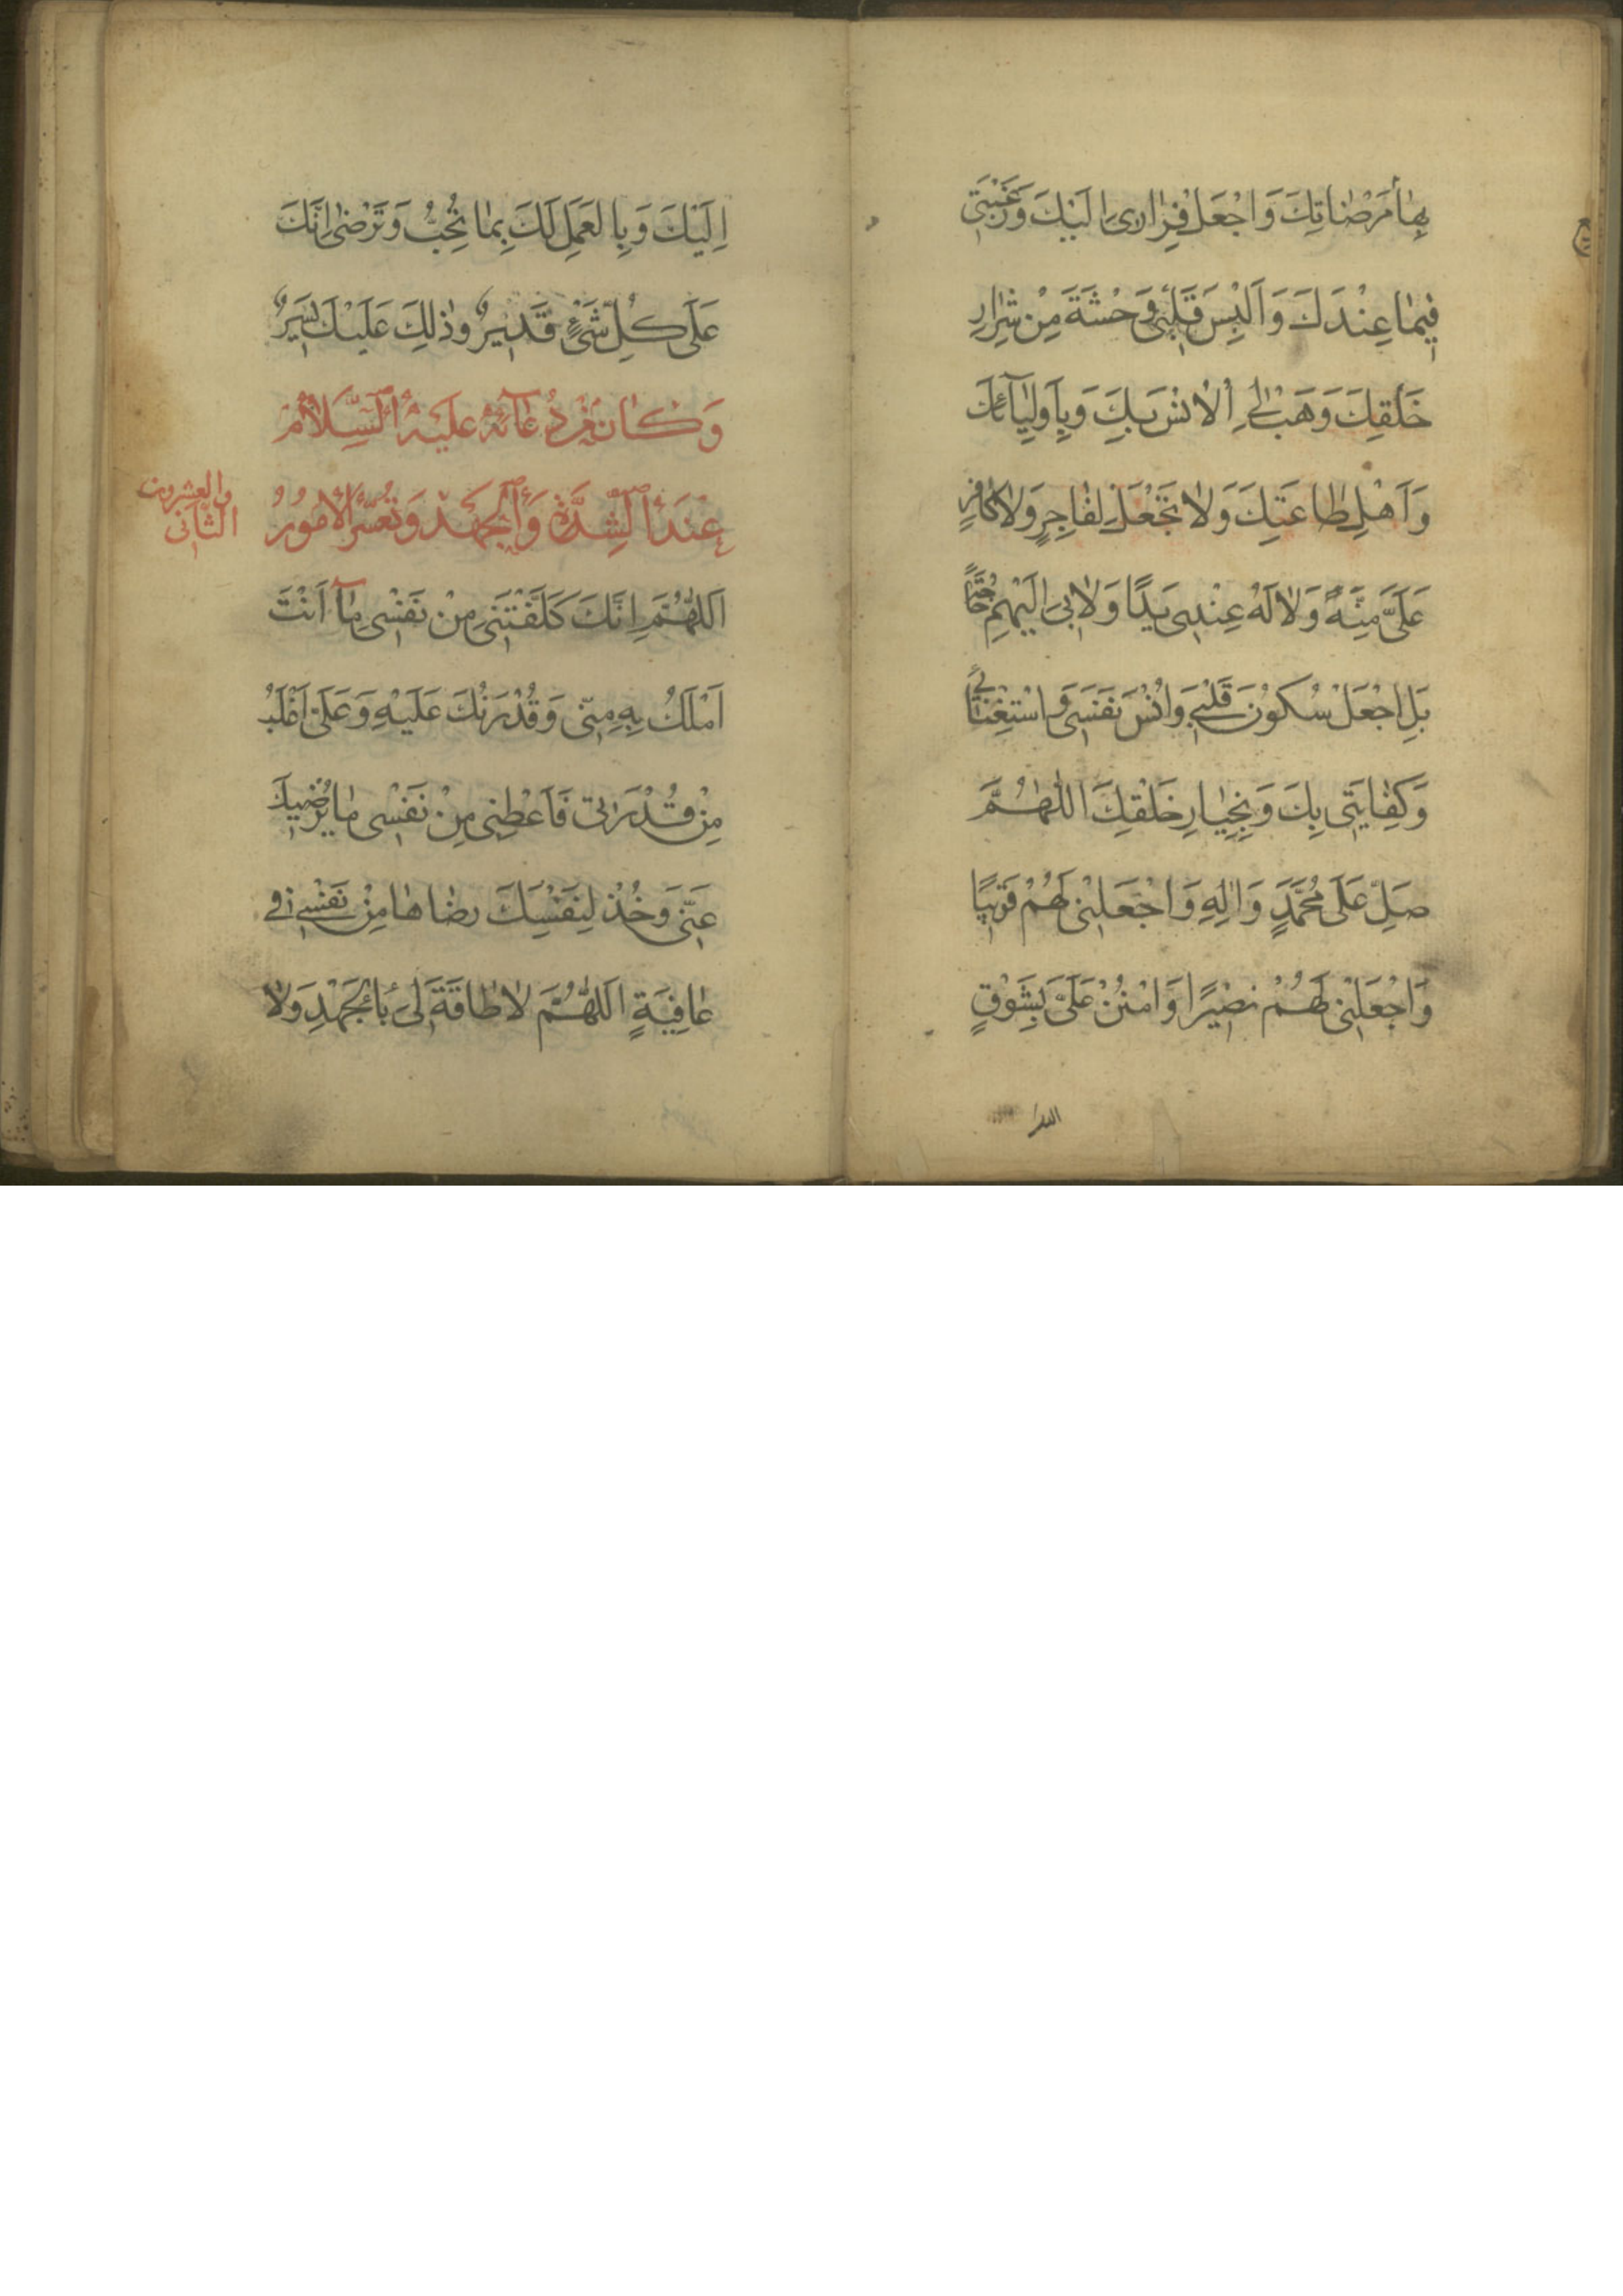 بِهٰا مَرْضٰاتِكَ وَاجْعَلْ فِرٰارِى اِلَيْكَ وَرَغْبَتِى
فِيمٰا عِنْدَكَ وَاَلْبِسْ قَلْبِى وَحْشَةَ مِنْ شِرٰارِ
خَلْقِكَ وَهَبْ لِىَ الْاُنْسَ بِكَ وَبِاَوْلِيٰآئِكَ
وَاَهْلِ طٰاعَتِكَ وَلاٰ تَجْعَلْ لِفٰاجِرٍ وَلاٰ كٰافِرٍ
عَلَىَّ مِنَّةً وَلاٰ لَهُ عِنْدِى يَدًا وَلاٰ بِى اِلَيْهِمْ حٰاجَةً
بَلِ اجْعَلْ سُكُوْنَ قَلْبِى وَاُنْسَ نَفْسِى وَاسْتِغْنٰائِى
وَكِفٰايَتِى بِكَ وَبِخِيٰارِ خَلْقِكَ اَللّٰهُمَّ
صَلِّ عَلٰى مُحَمَّدٍ وَاٰلِهِ وَاجْعَلْنِى لَهُمْ قَرِيْبًا
وَاجْعَلْنِى لَهُمْ نَصِيْرًا وَامْنُنْ عَلَىَّ بِشَوْقٍ
اِلَيْكَ وَبِالْعَمَلِ لَكَ بِمٰا تُحِبُّ وَتَرْضٰى اِنَّكَ
عَلٰى كُلِّ شَىْءٍ قَدِيْرٌ وَذٰلِكَ عَلَيْكَ يَسِيْرٌ
وَكٰانَ مِنْ دُعٰآئِهِ عَلَيْهِ السَّلاٰمُ
عِنْدَ الشِّدَّةِ وَالْجَهْدِ وَتَعَسُّرِ الْاُمُوْرِ
الثّٰانى والعشرون
اَللّٰهُمَّ اِنَّكَ كَلَّفْتَنِى مِنْ نَفْسِى مٰآ اَنْتَ
اَمْلَكُ بِهِ مِنِّى وَقُدْرَتُكَ عَلَيْهِ وَعَلَىَّ اَغْلَبُ
مِنْ قُدْرَتِى فَاَعْطِنِى مِنْ نَفْسِى مٰا يُرْضِيْكَ
عَنِّى وَخُذْ لِنَفْسِكَ رِضٰاهٰا مِنْ نَفْسِى فِى
عٰافِيَةٍ اَللّٰهُمَّ لاٰ طٰاقَةَ لِى بِالْجَهْدِ وَلاٰ